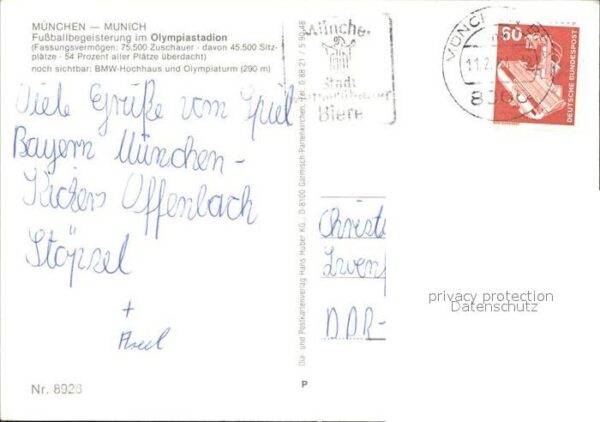 MÜNCHEN — MUNICH
Fußballbegeisterung im Olympiastadion
(Fassungsvermögen: 75.500 Zuschauer - davon 45.500 Sitz-
plätze - 54 Prozent aller Plätze überdacht)
noch sichtbar: BMW-Hochhaus und Olympiaturm (290 m)
Viele Grüße vom Spiel
Bayern München -
Kickers Offenbach
Stöpsel
+
Nr. 8926
Dia- und Postkartenverlag Hans Huber KG., D-8100 Garmisch-Partenkirchen, Tel. 0 88 21 / 5 90 48
P
Münche
Stadt
Biere
MÜNCH
11.2
60
DEUTSCHE BUNDESPOST
Christ
DDR-
privacy protection
Datenschutz